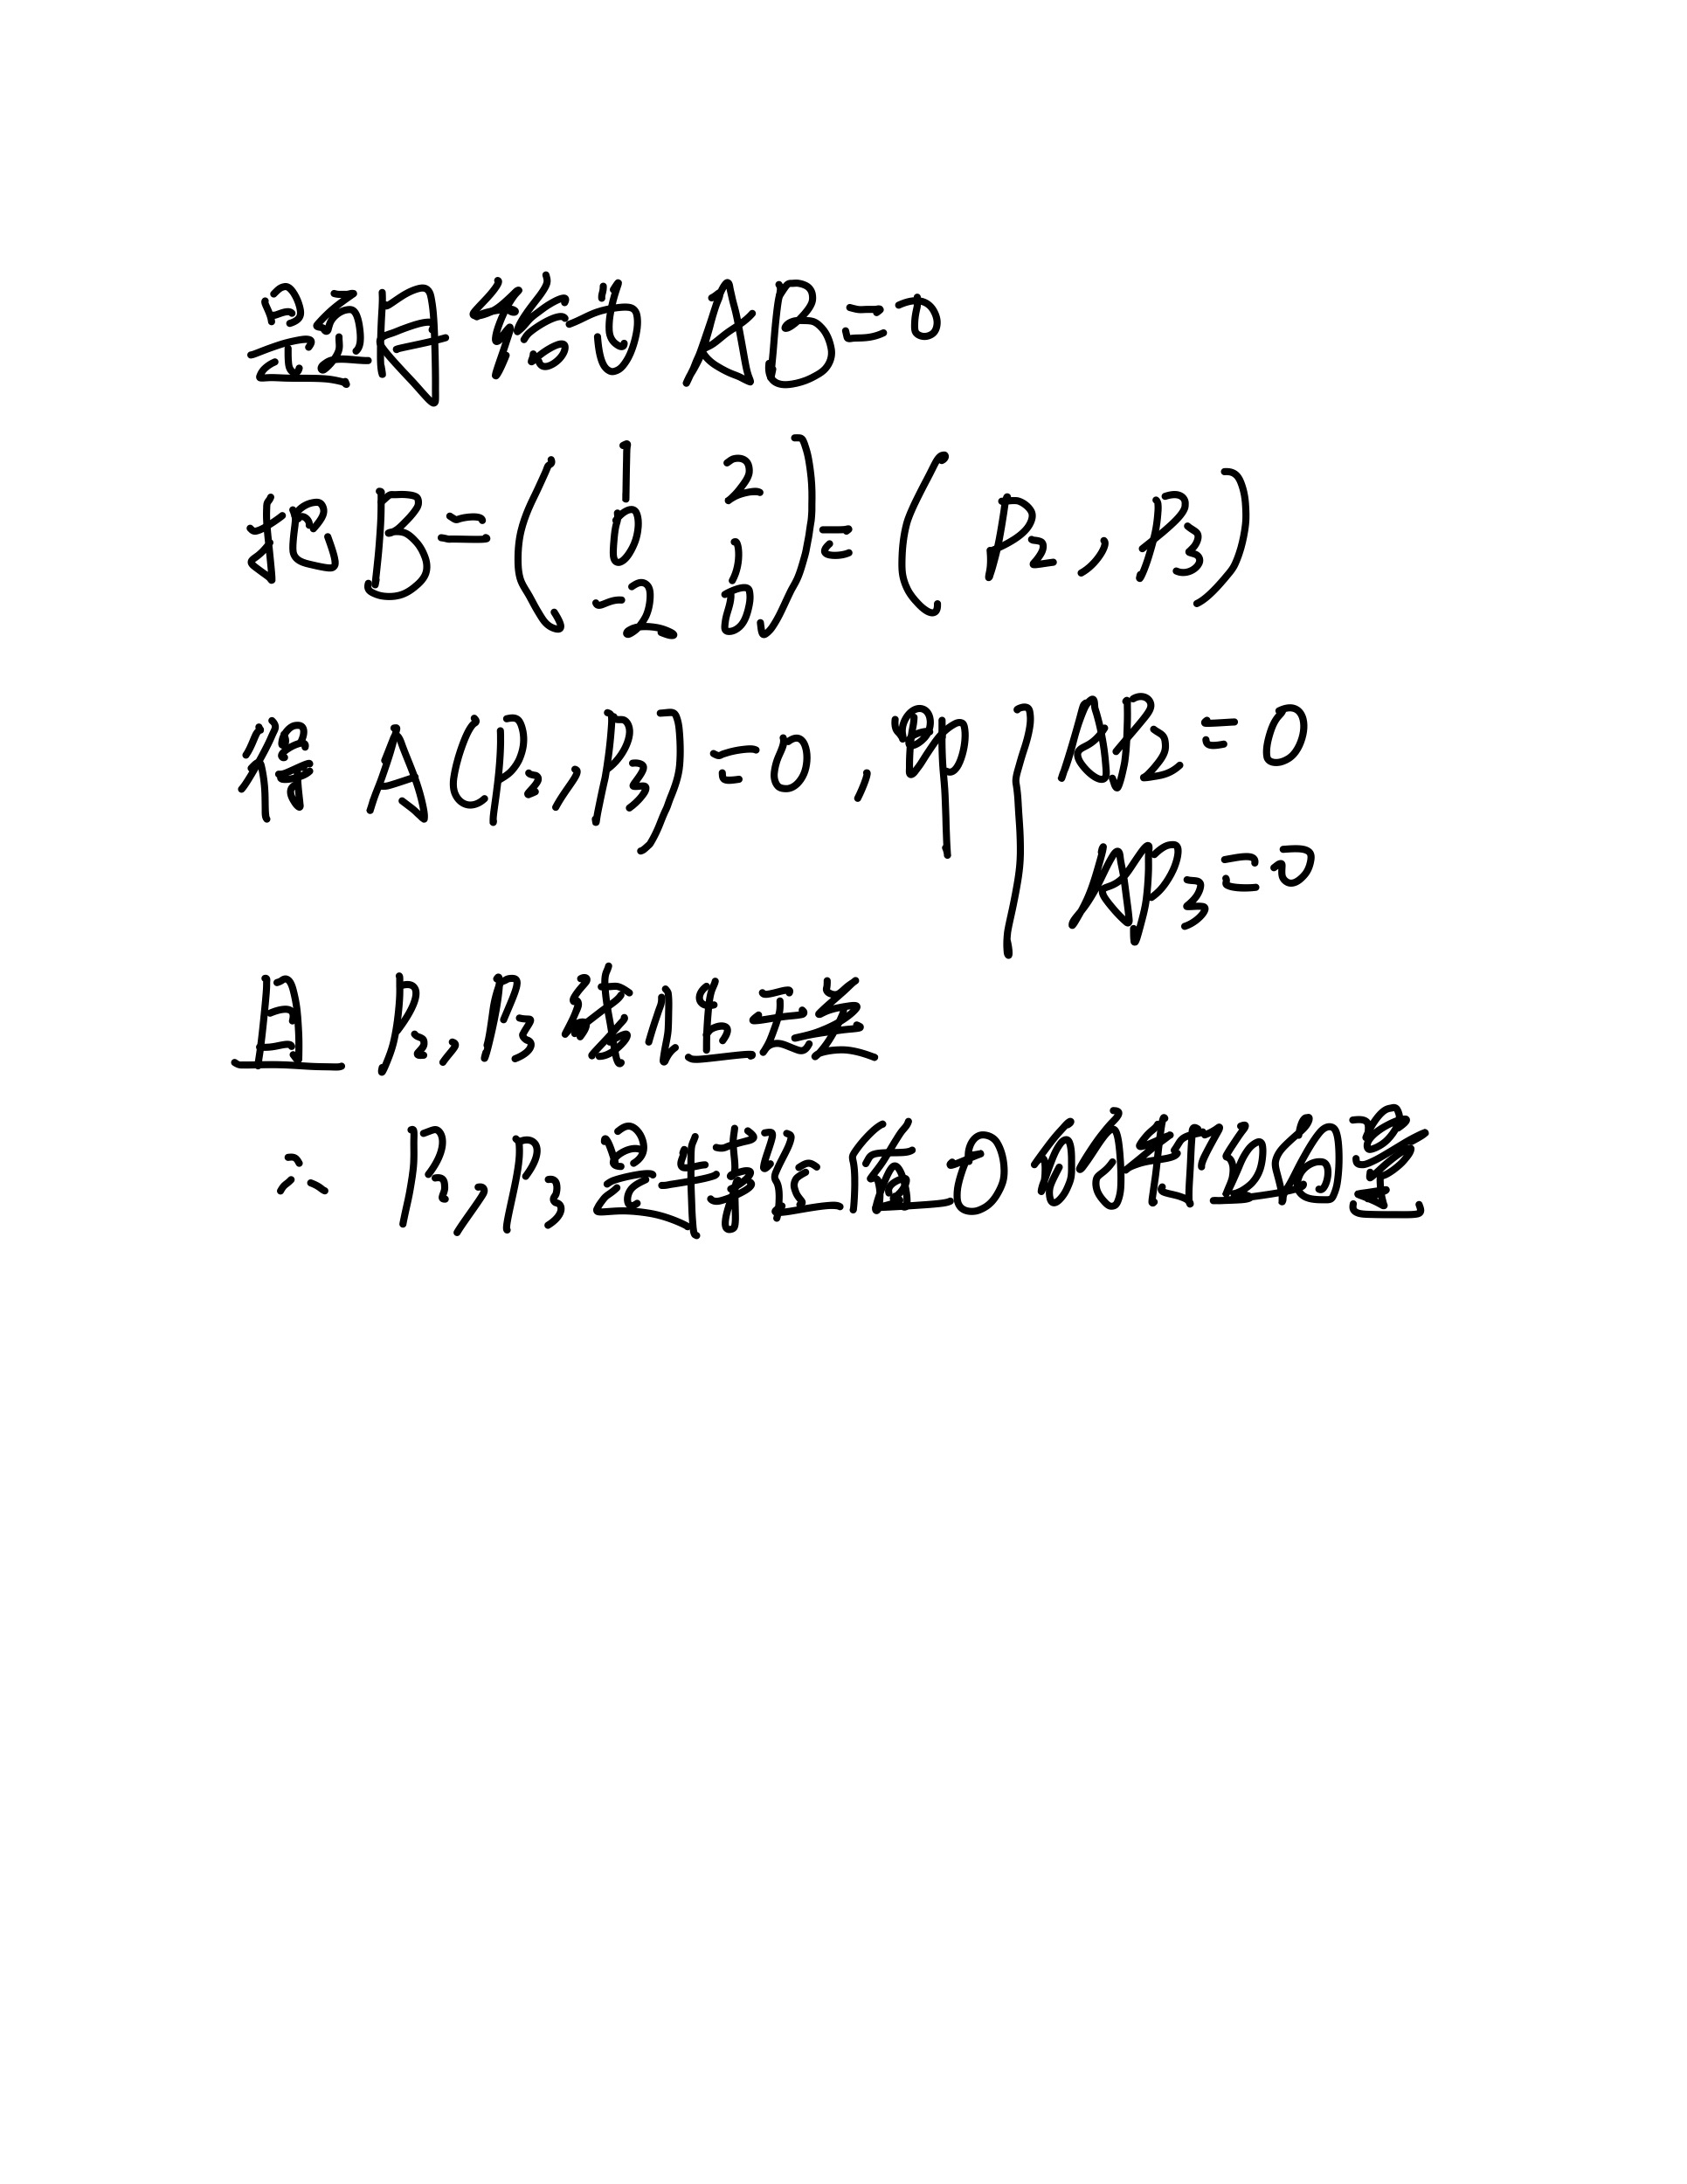 题目给的 AB=0
把B=(1 2 0 1 -2 0)=(β2, β3)
得 A(β2, β3)=0, 即 {Aβ2=0
Aβ3=0
且 β2, β3 线性无关
∴ β2, β3 是特征值0的特征向量